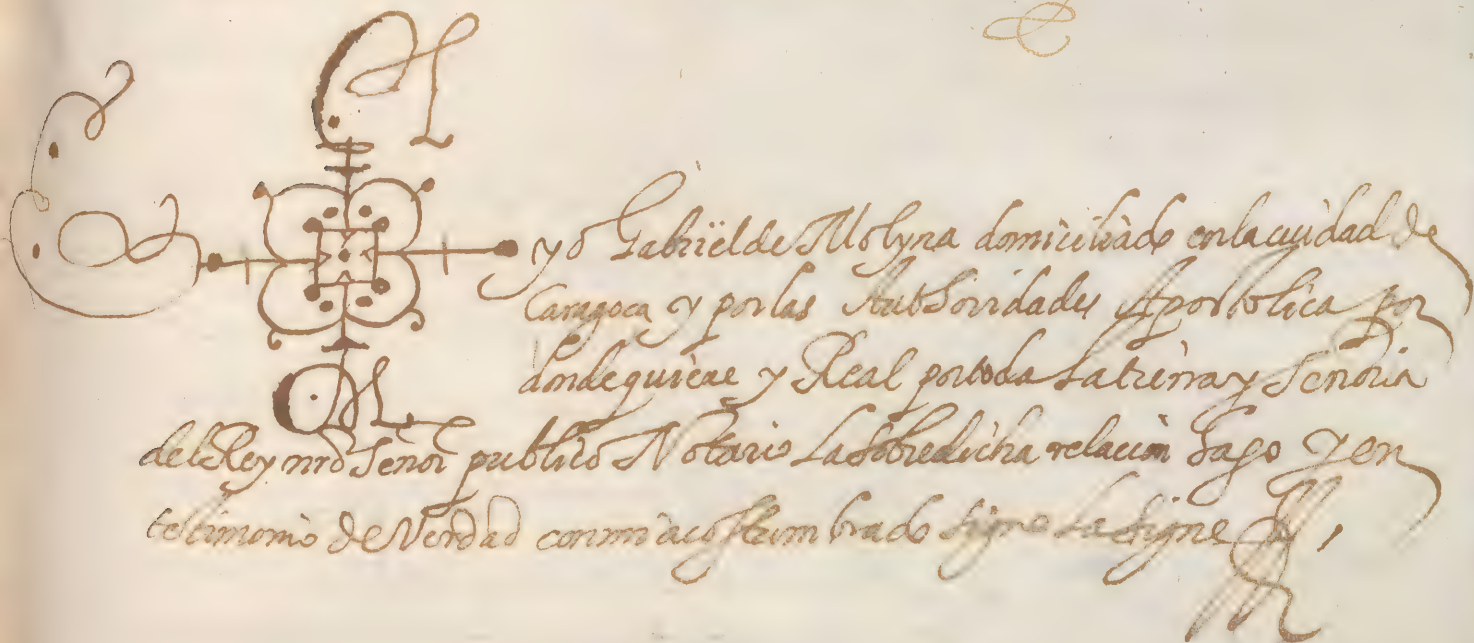 yo Gabriel de Molyna domiciliado en la ciudad de
Caragoça y por las Authoridades Apostolica por
dondequiere y Real por toda la tierra y Señoria
del Rey nro Señor publico Notario la sobredicha relacion hago y en
testimonio de Verdad con mi acostumbrado signo la signe